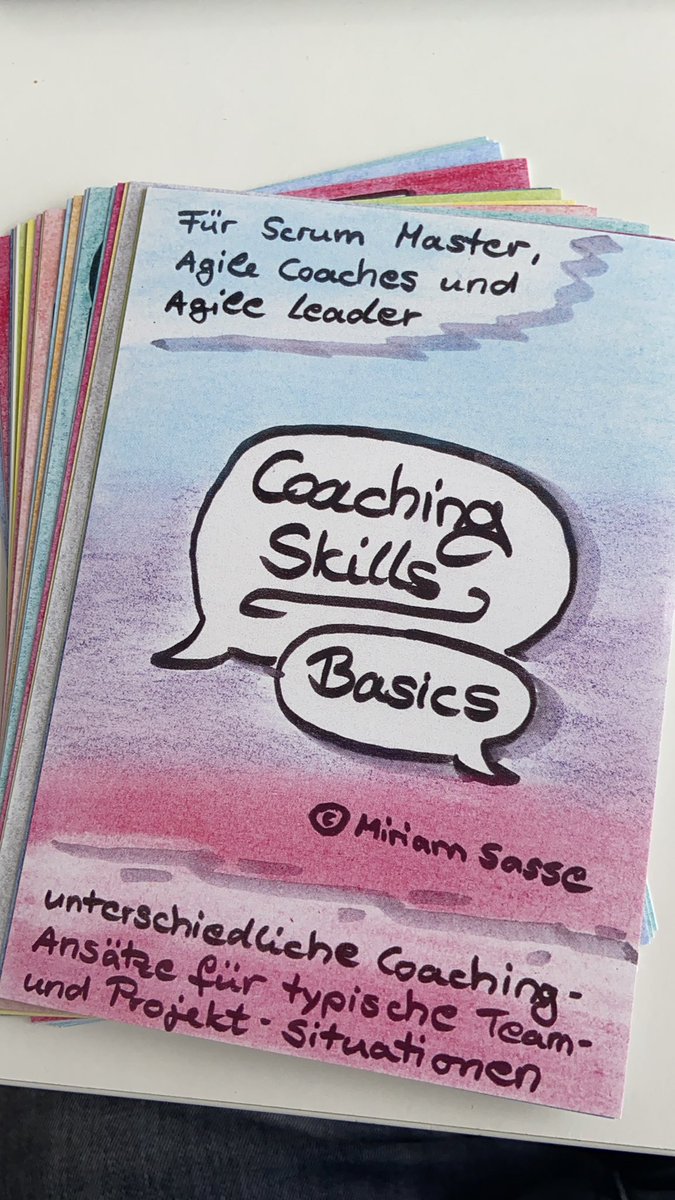 Für Scrum Master,
Agile Coaches und
Agile Leader
Coaching
Skills
Basics
© Miriam Sasse
unterschiedliche Coaching-
Ansätze für typische Team-
und Projekt-Situationen